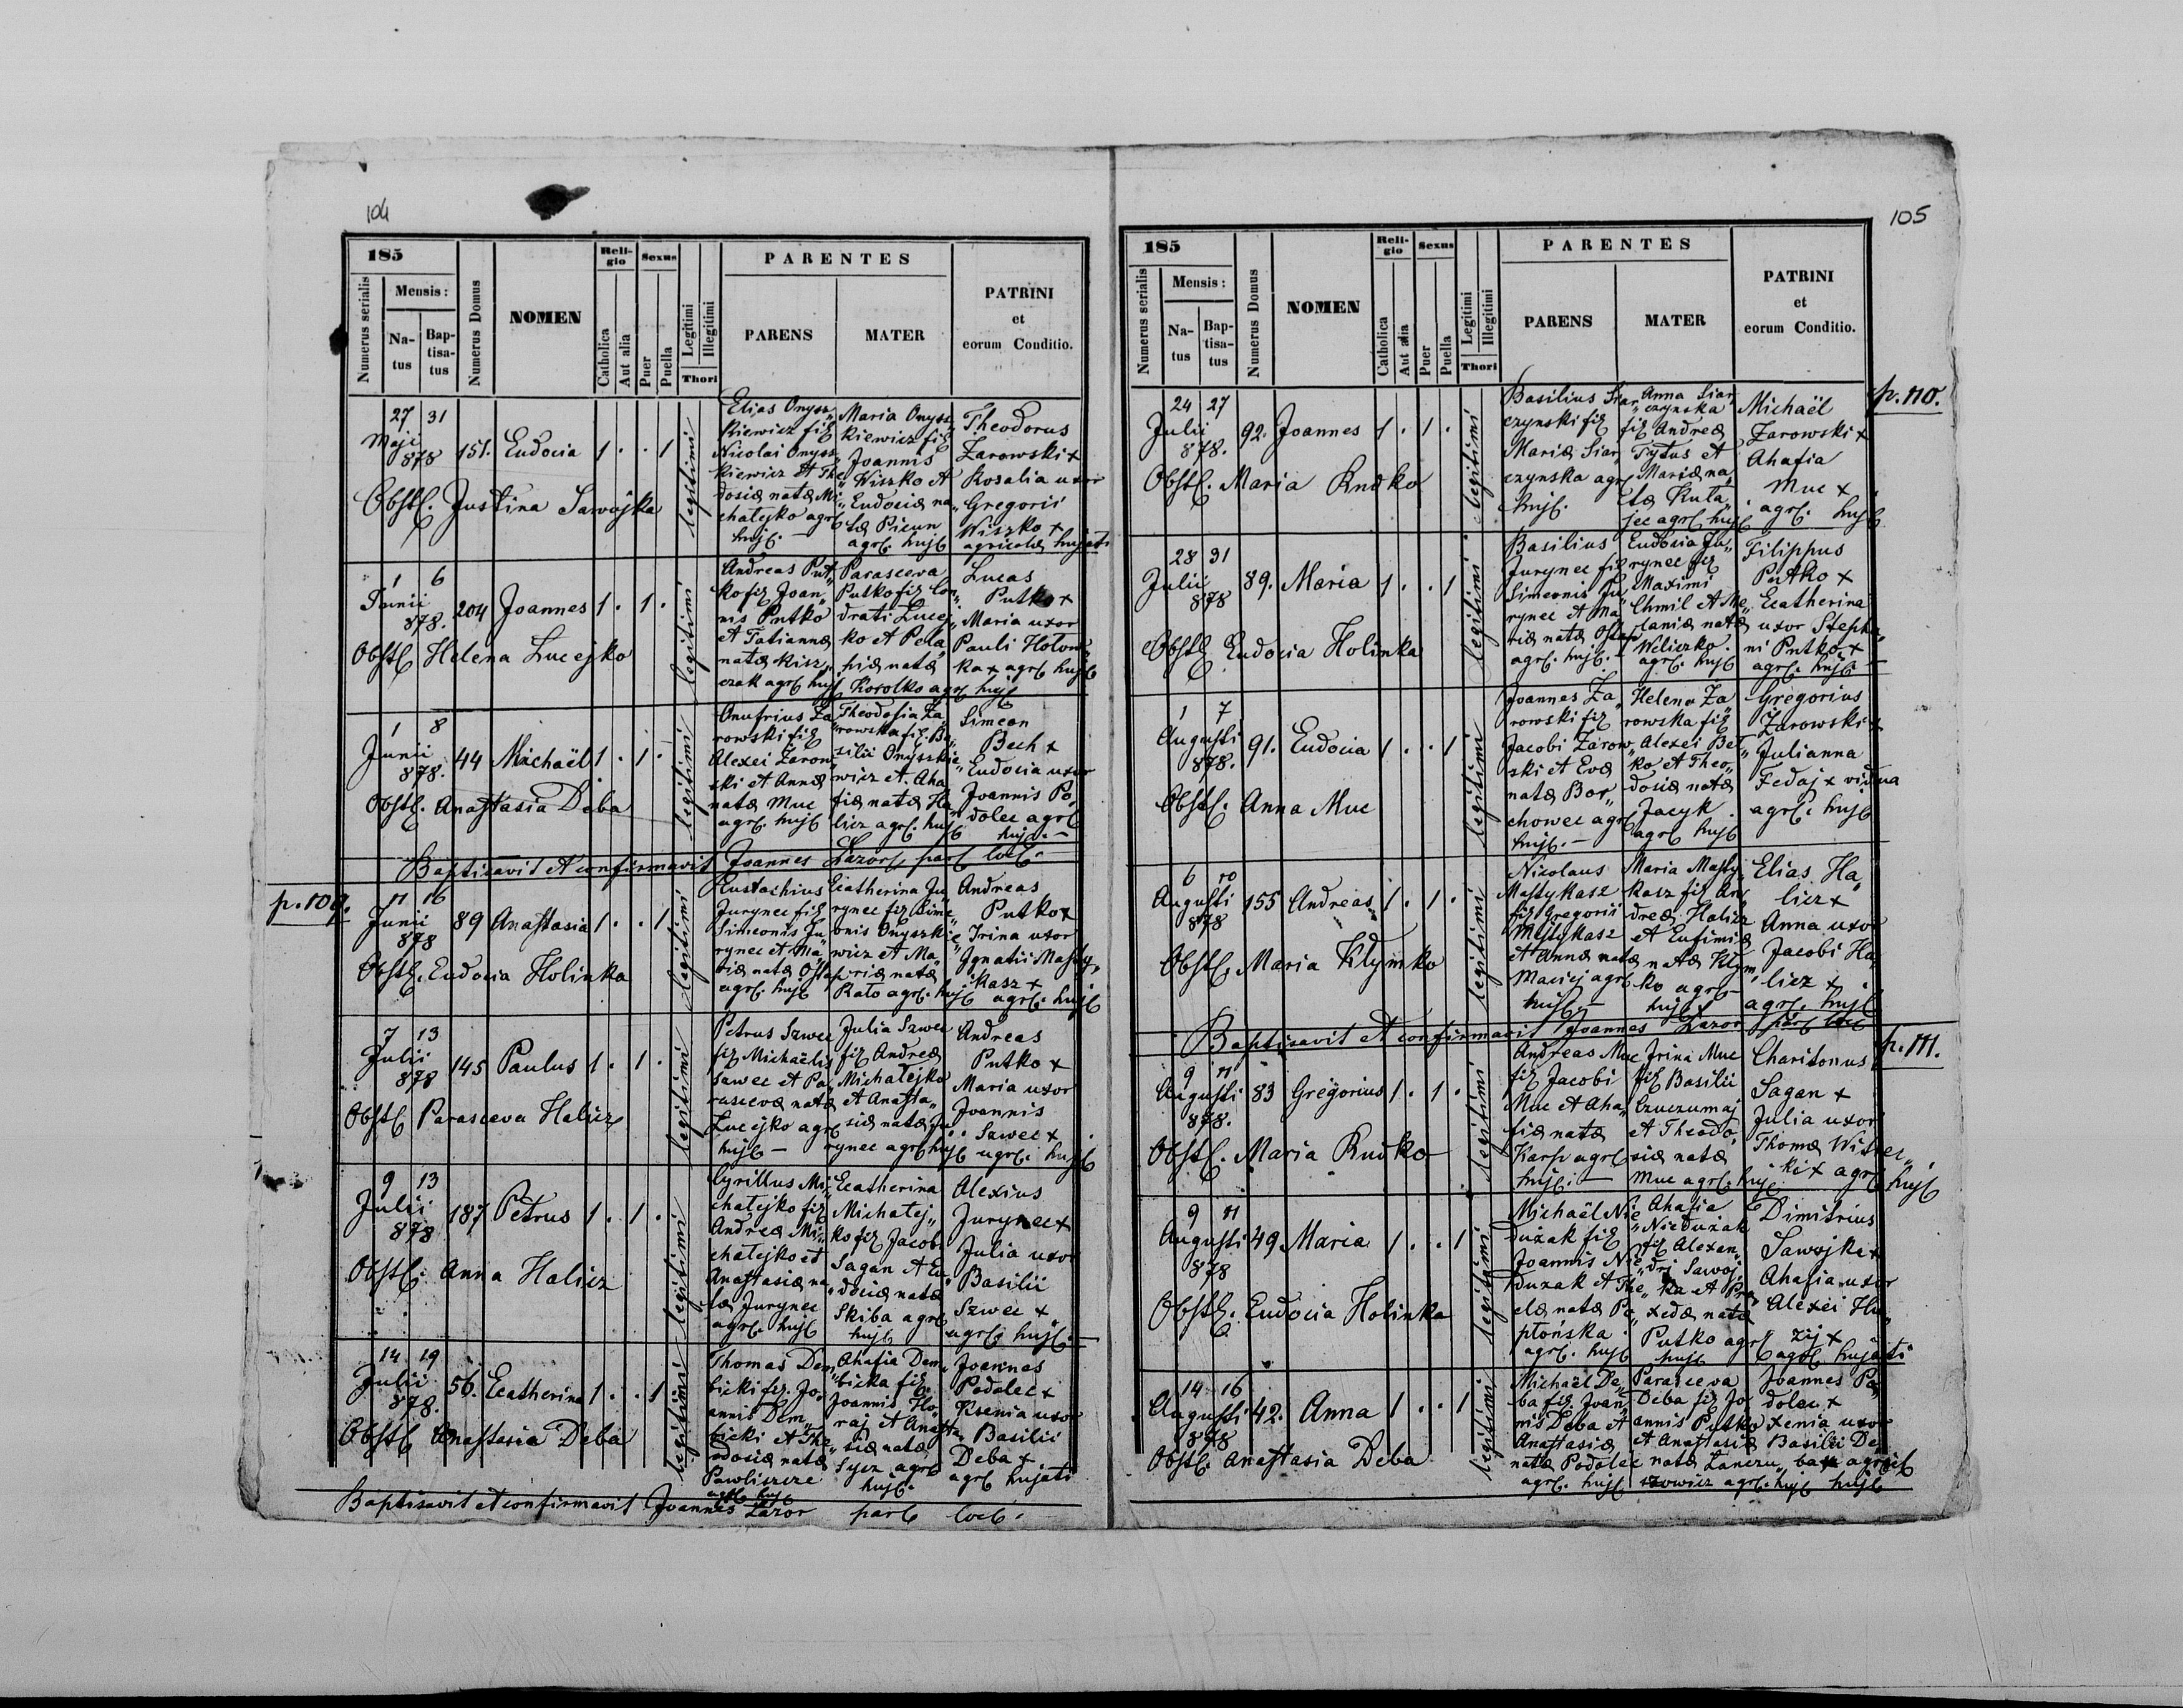 104
185
Numerus serialis
Mensis:
Na-
tus
Bap-
tisa-
tus
Numerus Domus
NOMEN
Reli-
gio
Catholica
Aut alia
Sexus
Puer
Puella
Legitimi
Illegitimi
Thori
PARENTES
PARENS
MATER
PATRINI
et
eorum Conditio.
27 31
Maji
878
151. Eudocia 1 . . 1
legitimi
Obst. Justina Sawojka
Elias Onysz„
kiewicz fil
Nicolai Onysz„
kiewicz et The„
dosiæ natæ Mi„
chatejko agr
huj. —
Maria Onysz„
kiewicz fil
Joannis
Wiszko et
Eudociæ na„
tæ Picun
agr. huj
Theodorus
Zarowski +
Rosalia uxor
Gregorii
Wiszko +
agricolæ hujati
1 6
Junii
878.
204 Joannes 1 . 1 .
legitimi
Obst Helena Lucejko
Andreas Put„
ko fil Joan„
nis Putko
et Tatiannæ
natæ Kisz„
czak agr huj
Parasceva
Putko fil Con„
drati Lucej„
ko et Pela„
hiæ natæ
Korolko agr huj
Lucas
Putko +
Maria uxor
Pauli Holow„
ka + agr huj
1 8
Junii
878.
44 Michaël 1 . 1 .
legitimi
Obst. Anastasia Deba
Onufrius Za„
rowski fil
Alexei Zarow„
ski et Annæ
natæ Muc
agr. huj
Theodosia Za„
rowska fil. Ba„
silii Onyszkie„
wicz et Aha„
fiæ natæ Ha„
licz agr. huj
Simeon
Bech +
Eudocia uxor
Joannis Po„
dolec agr
huj. —
Baptisavit et confirmavit Joannes Lazor par loc.
p. 109.
11 16
Junii
878
89 Anastasia 1 . . 1
legitimi
Obst. Eudocia Holinka
Eustachius
Jurynec fil
Simeonis Ju„
rynec et Ma„
riæ natæ Ostap
agr. huj
Ecatherina Ju„
rynec fil Sime„
onis Onyszkie„
wicz et Ma„
riæ natæ
Rato agr. huj
Andreas
Putko +
Irina uxor
Ignatii Masty„
kasz +
agr. huj
7 13
Julii
878
145 Paulus 1 . 1 .
legitimi
Obst Parasceva Halicz
Petrus Szwec
fil Michaëlis
Szwec et Pa„
rascevæ natæ
Lucejko agr
huj —
Julia Szwec
fil Andreæ
Michatejko
et Anasta„
siæ natæ Ju„
rynec agr huj
Andreas
Putko +
Maria uxor
Joannis
Szwec +
agr. huj
9 13
Julii
878
187 Petrus 1 . 1 .
legitimi
Obst. Anna Halicz
Cyrillus Mi„
chatejko fil
Andreæ Mi„
chatejko et
Anastasiæ na„
tæ Jurynec
agr. huj
Ecatherina
Michatej„
ko fil Jacobi
Sagan et Eu„
dociæ natæ
Skiba agr
huj
Alexius
Jurynec +
Julia uxor
Basilii
Szwec +
agr. huj. —
14 19
Julii
878.
56. Ecatherina 1 . . 1
legitimi
Obst Anastasia Deba
Thomas Dem„
bicki fil. Jo„
annis Dem„
bicki et The„
odosiæ natæ
Pawliszcze
agr huj
Ahafia Dem„
bicka fil.
Joannis Ho„
raj et Anasta„
siæ natæ
Sycz agr
huj.
Joannes
Podolec +
Ksenia uxor
Basilii
Deba +
agr hujati
Baptisavit et confirmavit Joannes Lazor par loc.
105
185
Numerus serialis
Mensis:
Na-
tus
Bap-
tisa-
tus
Numerus Domus
NOMEN
Reli-
gio
Catholica
Aut alia
Sexus
Puer
Puella
Legitimi
Illegitimi
Thori
PARENTES
PARENS
MATER
PATRINI
et
eorum Conditio.
p. 110.
24 27
Julii
878.
92. Joannes 1 . 1 .
legitimi
Obst. Maria Rudko
Basilius Siar„
czynski fil
Mariæ Siar„
czynska agr
huj.
Anna Siar„
czynska
fil Andreæ
Tytus et
Mariæ na„
tæ Kuta„
jec agr huj
Michaël
Zarowski +
Ahafia
Muc +
agr. huj
28 31
Julii
878
89. Maria 1 . . 1
legitimi
Obst Eudocia Holinka
Basilius
Jurynec fil
Simeonis Ju„
rynec et Ma„
riæ natæ Ostap
agr. huj. —
Eudocia Ju„
rynec fil
Maximi
Chmil et Me„
laniæ natæ
Weliczko
agr. huj
Filippus
Putko +
Ecatherina
uxor Stepha„
ni Putko +
agr. huj. —
1 7
Augusti
878.
91. Eudocia 1 . . 1
legitimi
Obst. Anna Muc
Joannes Za„
rowski fil
Jacobi Zarow„
ski et Evæ
natæ Bor„
chowec agr
huj. —
Helena Za„
rowska fil
Alexei Bet„
ko et Theo„
dosiæ natæ
Jacyk
agr huj
Gregorius
Zarowski +
Julianna
Fedaj + vidua
agr. huj
6 10
Augusti
878
155 Andreas 1 . 1 .
legitimi
Obst. Maria Klymko
Nicolaus
Mastykasz
fil Gregorii
Mastykasz
et Annæ natæ
Maciej agr
huj —
Maria Masty„
kasz fil An„
dreæ Halicz
et Eufimiæ
natæ Klym„
ko agr —
huj
Elias Ha„
licz +
Anna uxor
Jacobi Ha„
licz +
agr. huj
Baptisavit et confirmavit Joannes Lazor par loc
p. 111.
9 11
Augusti
878.
83 Gregorius 1 . 1 .
legitimi
Obst. Maria Rudko
Andreas Muc
fil Jacobi
Muc et Aha„
fiæ natæ
Karp agr
huj. —
Irina Muc
fil Basilii
Czuczumaj
et Theodo„
siæ natæ
Muc agr. huj
Charitonus
Sagan +
Julia uxor
Thomæ Witwic„
ki + agr huj
9 11
Augusti
878
49. Maria 1 . . 1
legitimi
Obst. Eudocia Holinka
Michaël Nie„
dużak fil
Joannis Nie„
dużak et The„
clæ natæ Pa„
ptońska
agr. huj
Ahafia
Niedużak
fil Alexan„
dri Sawoj„
ka et Pra„
xedæ natæ
Putko agr
huj
Dimitrius
Sawojka +
Ahafia uxor
Alexei Hu„
zij +
agr. hujati
14 16
Augusti
878
42. Anna 1 . . 1
legitimi
Obst. Anastasia Deba
Michaël De„
ba fil. Joan„
nis Deba et
Anastasiæ
natæ Podolec
agr. huj
Parasceva
Deba fil Jo„
annis Putko
et Anastasiæ
natæ Lanczu„
szowicz agr. huj
Joannes Po„
dolec +
Xenia uxor
Basilii De„
ba + agr
huj